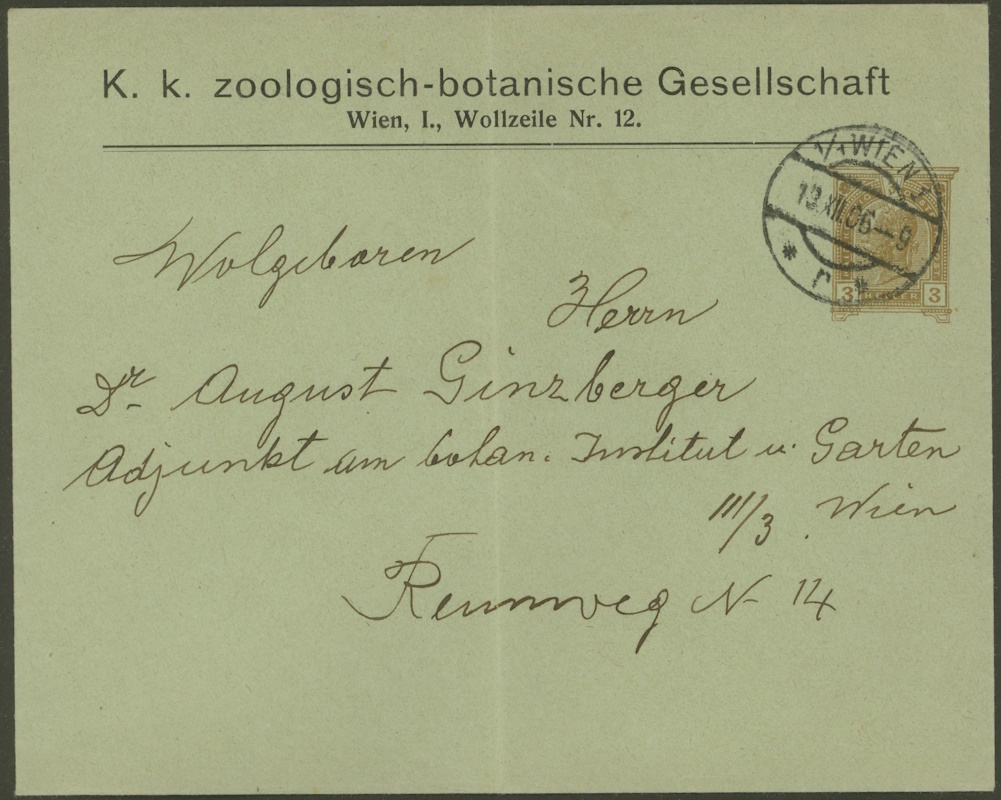 K. k. zoologisch-botanische Gesellschaft
Wien, I., Wollzeile Nr. 12.
1/1 WIEN 1
13.XII.06—9
* r *
3 3
Wolgeboren
Herrn
Dr. August Ginzberger
Adjunkt am botan. Institut u. Garten
III/3 Wien
Rennweg N 14